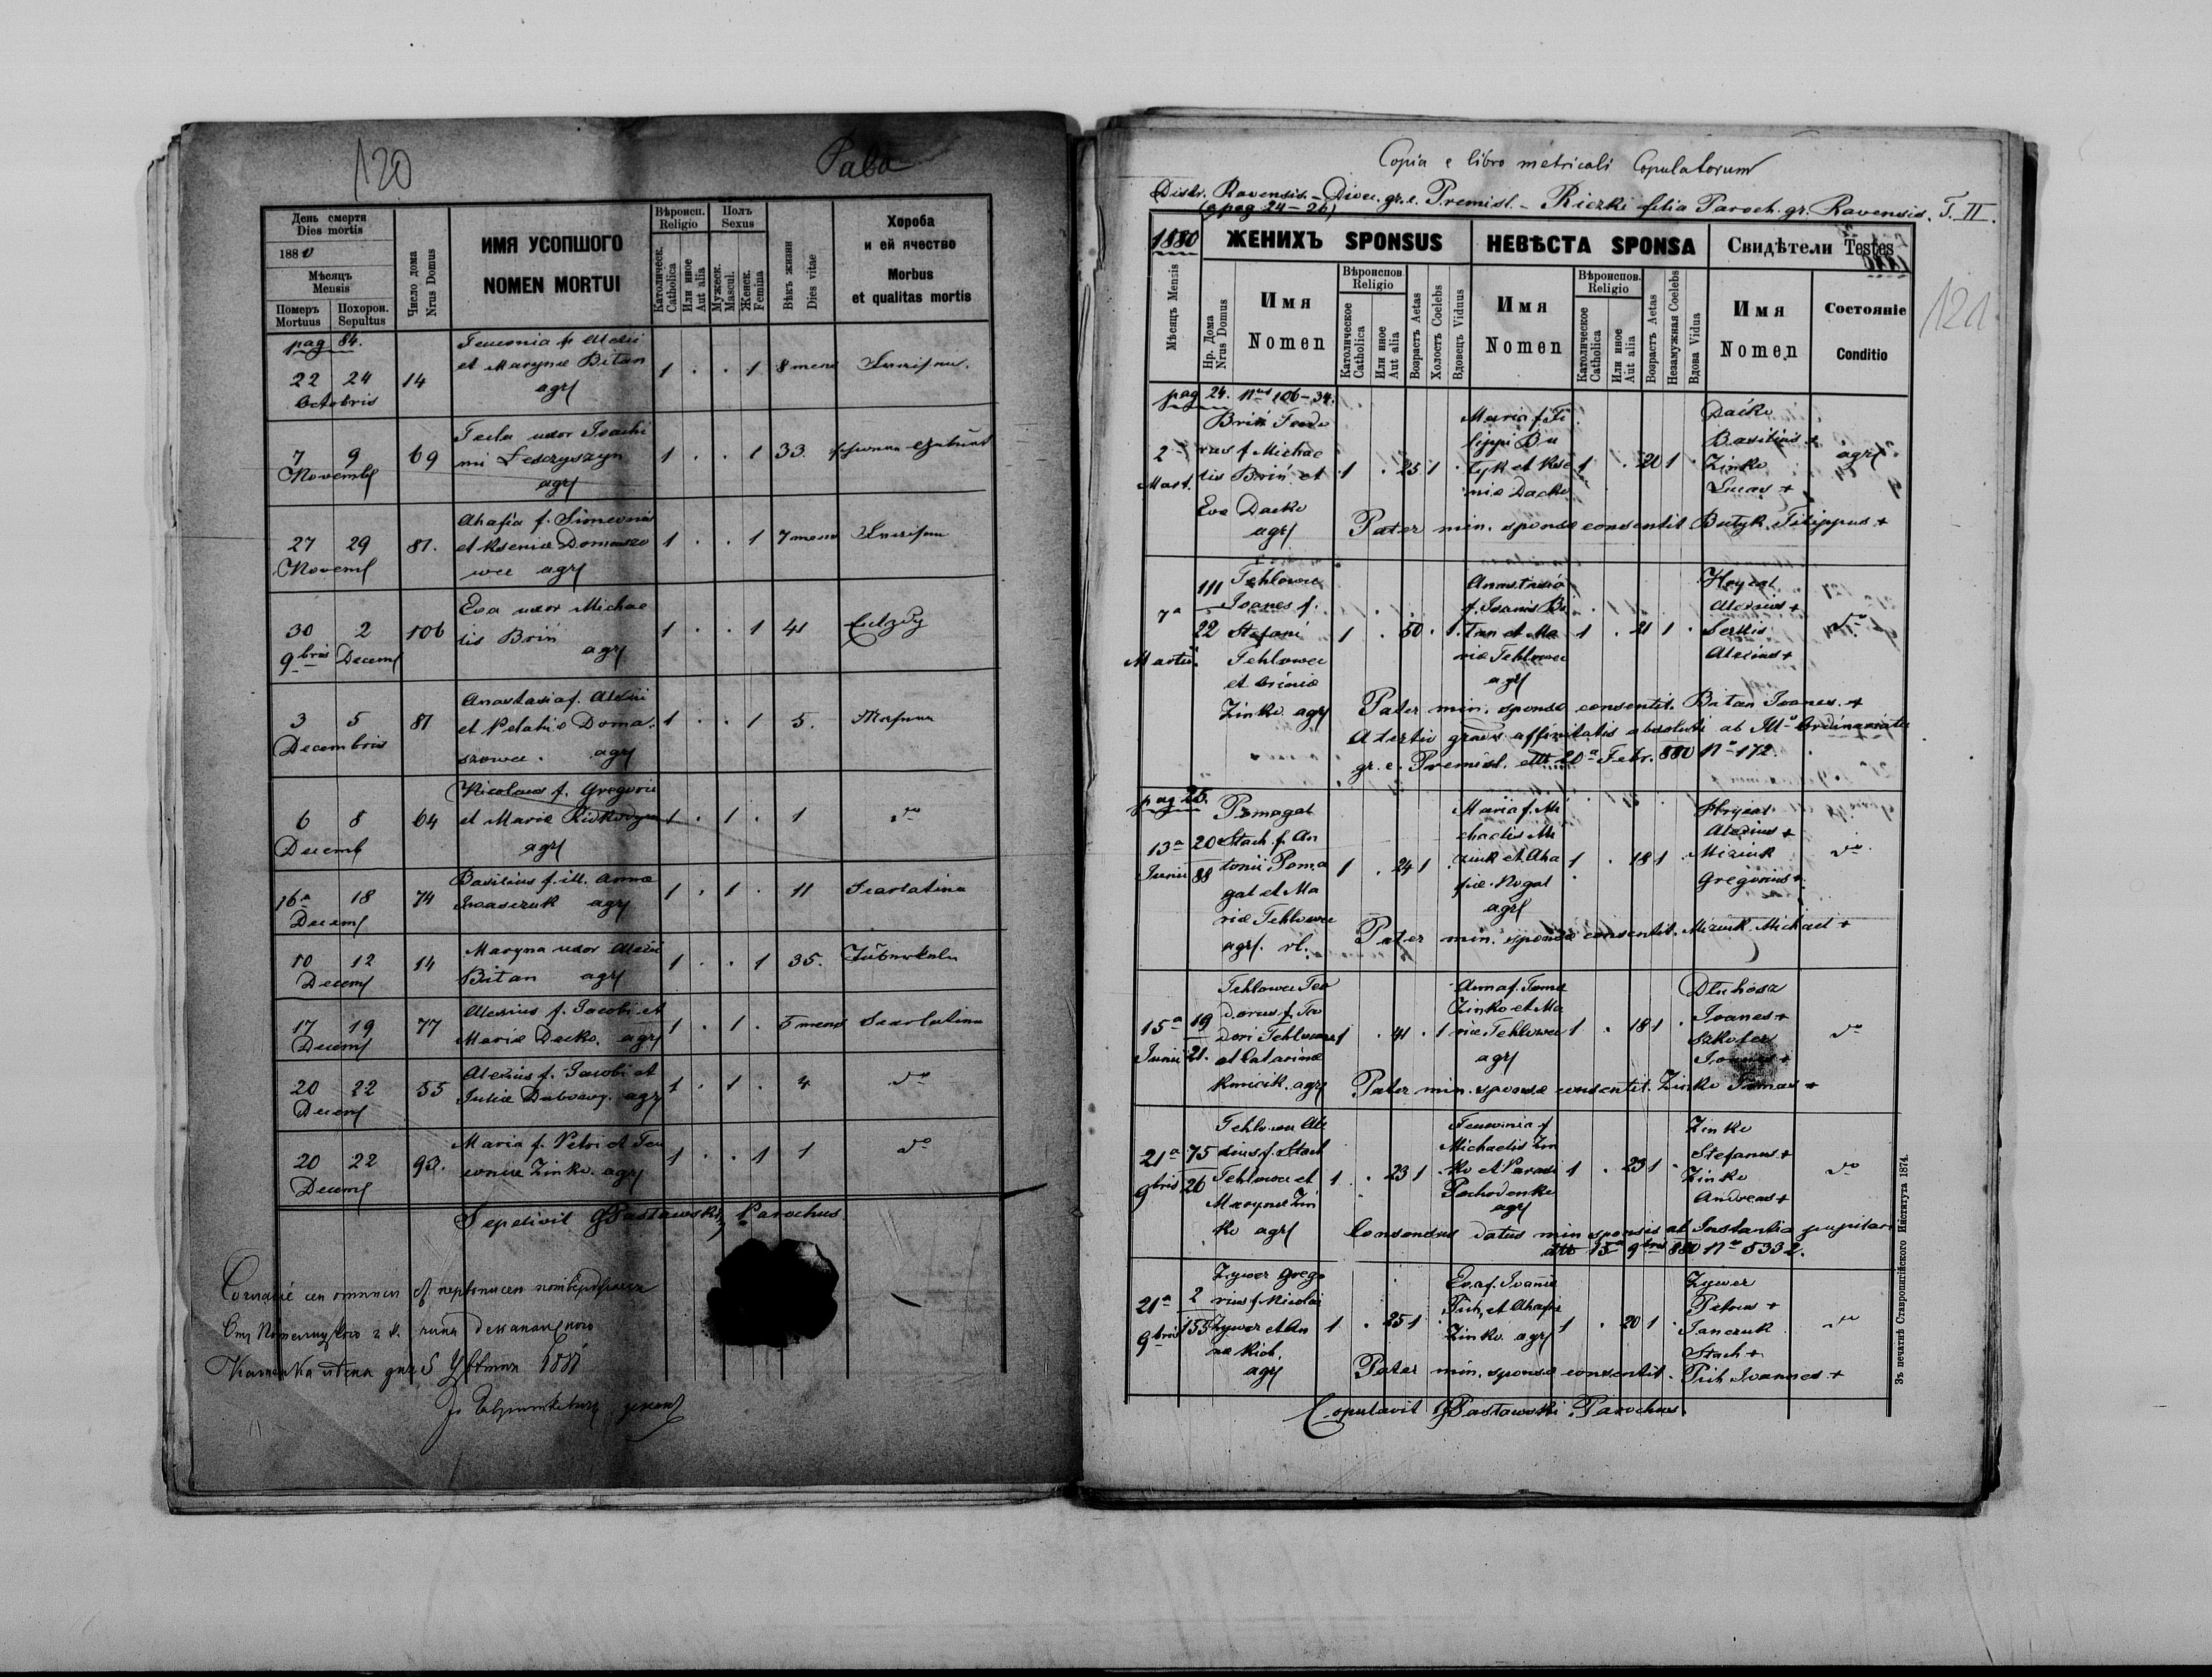 120
Рава
День смерти
Dies mortis
1880
Мѣсяцъ
Mensis
Померъ
Mortuus
Похорон.
Sepultus
Число дома
Nrus Domus
ИМЯ УСОПШОГО
NOMEN MORTUI
Вѣроисп.
Religio
Католическ.
Catholica
Или иное
Aut alia
Полъ
Sexus
Мужеск.
Mascul.
Женск.
Femina
Вѣкъ жизни
Dies vitae
Хороба
и ей ячество
Morbus
et qualitas mortis
pag 84.
22 24 Octobris 14
et Marynæ Bitan
agr
1 . . 1 8 mens
7 9 Novemb 69
Tecla uxor Joachi
mi Leszczyszyn
agr
1 . . 1 33
27 29 Novem 81.
Ahafia f. Simeonis
et Kseniæ Domaszo
wee agr
1 . . 1 7 mens
30 2 106
9bris Decem
Eva uxor Michae
lis Briń agr
1 . . 1 41
3 5 Decembris 81
Anastasia f. Alexii
et Pelahiæ Doma
szowee . agr
1 . . 1 5.
6 8 Decemb 64
Nicolaus f. Gregorii
et Mariæ
agr
1 . 1 . 1 do
16a 18 Decem 74
Basilius f. ill. Annæ
Iwaszczuk agr
1 . 1 . 11 Scarlatina
10 12 Decem 14
Maryna uxor Alexii
Bitan agr
1 . . 1 35.
17 19 Decem 77
Alexius f. Jacobi et
Mariæ Dacko. agr
1 . 1 . 5 mens Scarlatina
20 22 Decem 55
Alexius f. Jacobi et
Juliæ Dubowy. agr
1 . 1 . 4 do
20 22 Decem 93.
Maria f. Petri et Teu
coniæ Zinko. agr
1 . . 1 1 do
Sepelivit Pastawski, Parochus
Copia e libro metricali Copulatorum
Distr. Ravensis. – Dioec. gr. c. Premisl. – Riczki filia Paroch. gr. Ravensis. T. II.
(a pag 24 – 26)
121
1880
ЖЕНИХЪ SPONSUS
НЕВѢСТА SPONSA
Свидѣтели Testes
Мѣсяцъ Mensis
Нр. Дома
Nrus Domus
Имя
Nomen
Вѣроиспов.
Religio
Католическое
Catholica
Или иное
Aut alia
Возрастъ Aetas
Холостъ Coelebs
Вдовецъ Viduus
Имя
Nomen
Вѣроиспов.
Religio
Католическое
Catholica
Или иное
Aut alia
Возрастъ Aetas
Незамужная Coelebs
Вдова Vidua
Имя
Nomen
Состояніе
Conditio
pag 24. Nrus 106 – 34.
2 Mart.
Briń Teodo
rus f. Michae
lis Briń et
Eva Dacko
agr
1 . 23 1 .
Maria f. Fi
lippi Bu
tyk et Kse
niæ Dacko
1 . 20 1 .
Dacko
Basilius +
Zinko
Lucas +
agr
Pater min. sponsæ consentit Butyk Filippus +
7a Martii
111
22
Tehlowee
Joanes f.
Stefani
Tehlowee
et Iriniæ
Zinko agr
1 . 50 . 1.
Anastasia
f. Joanis Bi
tan et Ma
riæ Tehlowee
agr
1 . 21 1 .
Hrycal
Alexius +
Serkis
Alexius +
do
Pater min. sponsæ consentit. Bitan Joanes. +
A tertio gradu affinitatis absoluti ab Ill. Ordinariatu
gr. c. Premisl. dtto 20a Febr. 880 No 172.
pag 25.
13a Junii
20
88
Pomagal
Stach f. An
tonii Poma
gal et Ma
riæ Tehlowee
agr. rl.
1 . 24 1
Maria f. Mi
chaelis Mi
ziuk et Aha
fiæ Rogal
agr
1 . 18 1 .
Hrycal
Alexius +
Miziuk
Gregorius +
do
Pater min. sponsæ consentit. Miziuk Michael +
15a Junii
19
21.
Tehlowee Teo
dorus f. Teo
dori Tehlowee
et Catarinæ
Kmicik. agr
1 . 41 . 1
Anna f. Tomæ
Zinko et Ma
riæ Tehlowee
agr
1 . 18 1 .
Dłuhosz
Joanes +
do
Pater min. sponsæ consentit. Zinko Tomas +
21a 9bris
75
26
Tehlowee Ale
xius f. Stach
Tehlowee et
Marynæ Zin
ko agr
1 . 23 1
Michaelis Zin
ko et Parasi
Pochodenko
agr
1 . 23 1 .
Zinko
Stefanus +
Zinko
Andreas +
do
Consensus datus min sponsis ab Instantia pupilari
dtto 15a 9bris 880 No 5332.
21a 9bris
2
155
Zywer Grego
rius f Nicolai
Zywer et An
næ Rich,
agr
1 . 25 1
Eva f. Joannis
Pich, et Ahafiæ
Zinko agr
1 . 20 1 .
Zywer
Petrus +
Janczuk
Stach +
do
Pater min. sponsæ consentit. Pich Joannes +
Copulavit Pastawski Parochus.
Зъ печатнѣ Ставропигійского Института 1874.